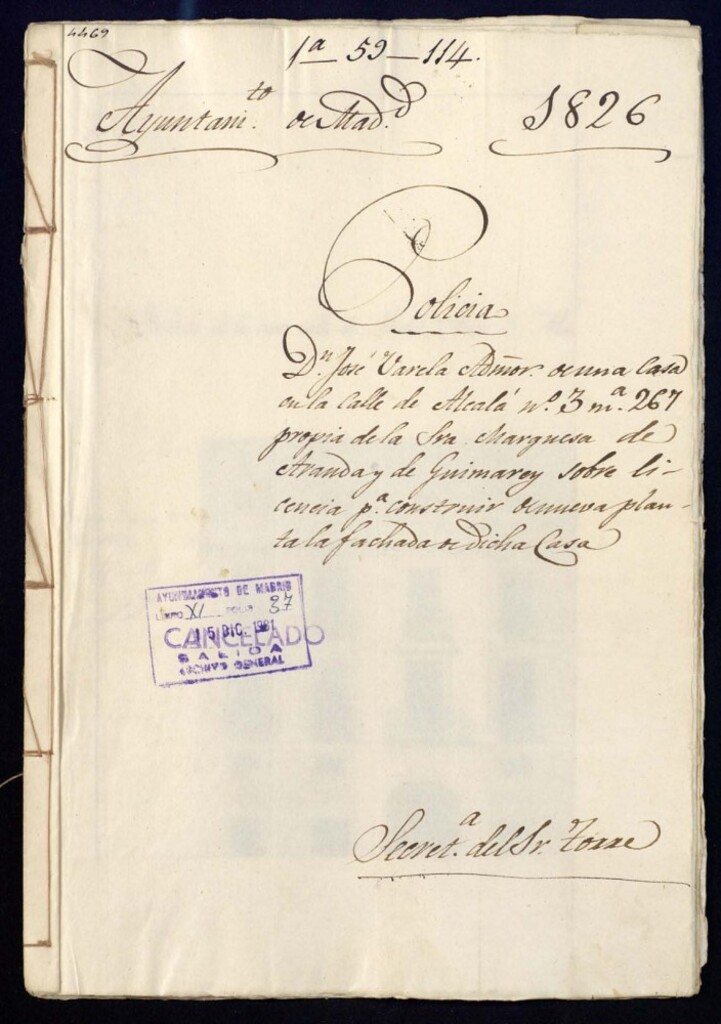 4469
1ª 59-114.
Ayuntam.to de Mad.d 1826
Policia
D.n José Varela Admor. de una Casa
en la Calle de Alcalá nº. 3 m.a 267
propia de la Sra. Marquesa de
Aranda y de Guimarey sobre li-
cencia p.a construir de nueva plan-
ta la fachada de dicha Casa
AYUNTAMIENTO DE MADRID
LIBRO XI FOLIO 37
15 DIC. 1981
CANCELADO
SALIDA
ARCHIVO GENERAL
Secret.a del Sr. Torre